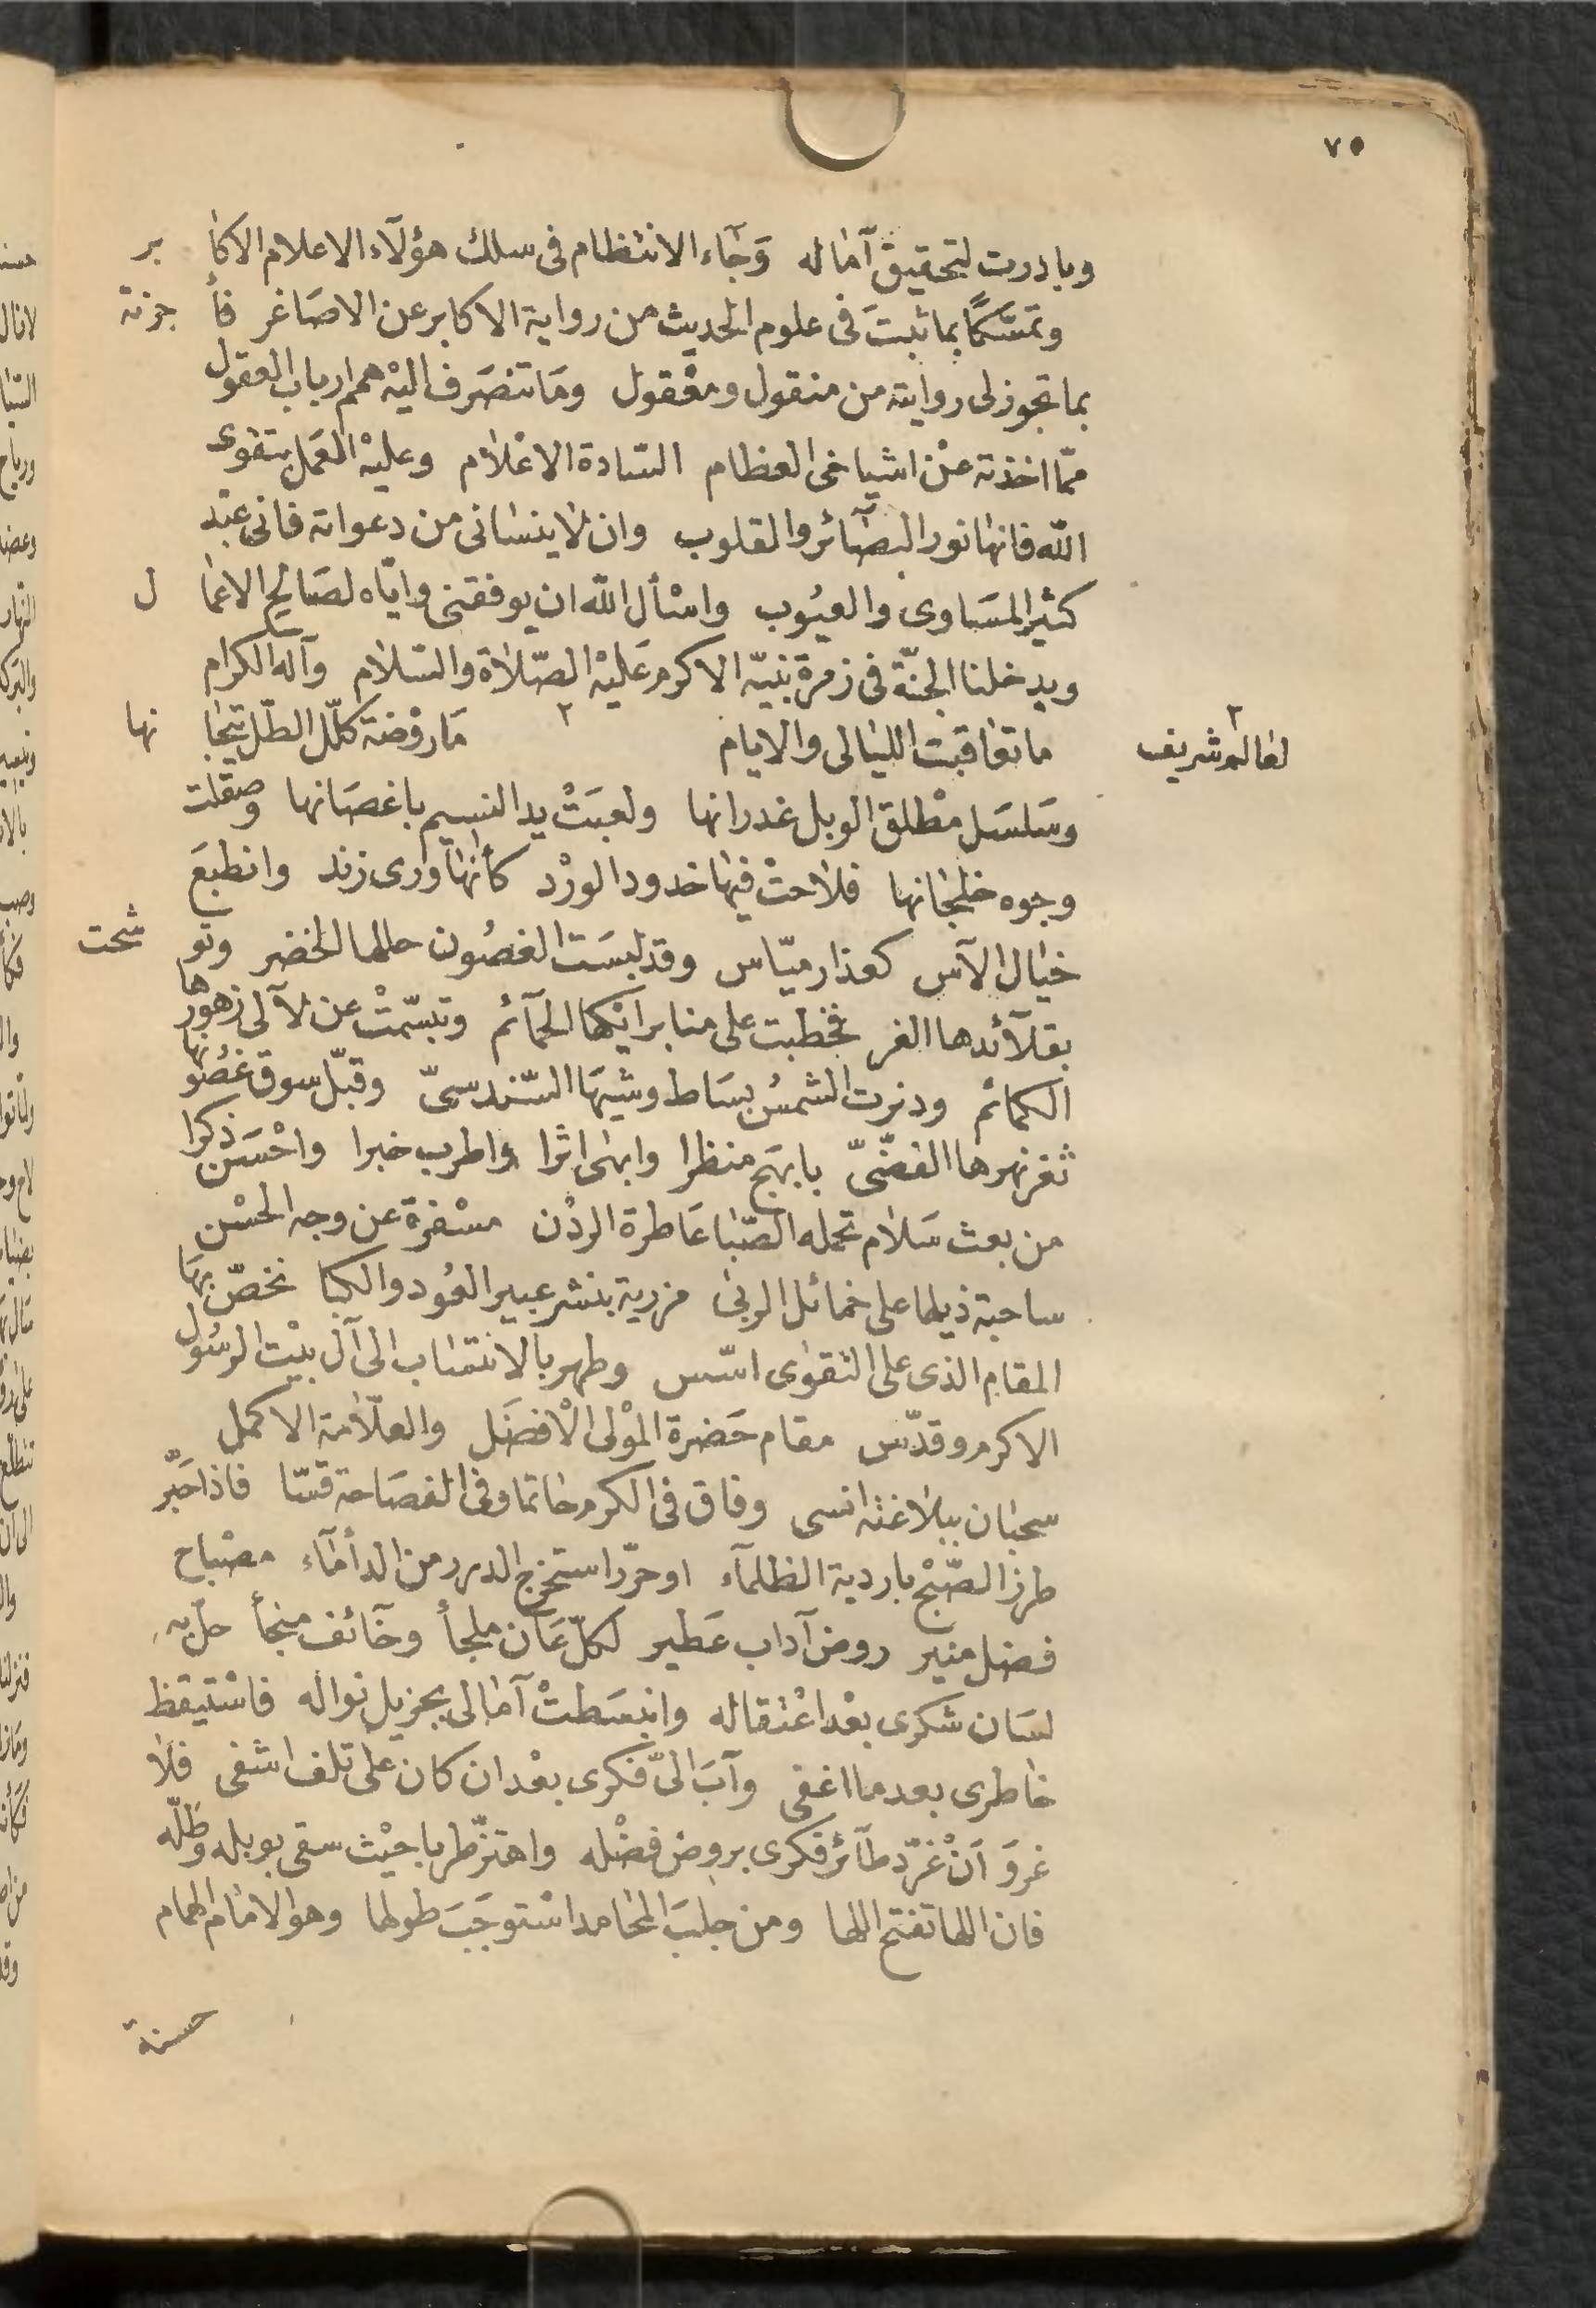 ٧٥
وبادرت لتحقيق آماله وَجَاء الانتظام فى سلك هؤلآء الاعلام الاكابر
وتمسّكًا بما ثبتَ فى علوم الحديث من رواية الاكابر عن الاصَاغر فأجزته
بما تجوز لى روايته من منقول ومعْقول ومَا تنصَرف اليْه همم ارباب العقول
ممّا اخذته عنْ اشياخى العظام السّادة الاعْلام وعليْه العَمل بتقوى
الله فانها نور البصَآئر والقلوب وان لا ينسانى من دعواته فانى عبْد
كثير المسَاوى والعيُوب واسْأل الله ان يوفقنى وايّاه لصَالح الاعمال
ويدخلنا الجنّة فى زمرة نبيّه الاكرم عَليْه الصّلاة والسّلام وآله الكرام
ما تعاقبت الليالى والايام ٢ مَا روْضة كلّل الطّل تيجانها
٢ لعالم شريف
وسَلسَل مطْلق الوبل غدرانها ولعبَتْ يد النسيم باغصَانها وصقلت
وجوه خلجانها فلاحتْ فيها خدود الورْد كأنها ورى زند وانطبَعَ
خيال الآس كعذار ميّاس وقد لبسَت الغصُون حللها الخضر وتوشحت
بقلآئدها الغر فخطبت على منابر ايْكها الحمآئم وتبسّمتْ عن لآلى زهورها
الكمائم ودنرت الشمسُ بسَاط وشيهَا السّندسىّ وقبّل سوق غصُونها
ثغر نهرها الفضّىّ بابهَج منظرا وابهٰى اثرا واطرب خبرا واحْسَن ذكرا
من بعث سَلام تحمله الصّبا عَاطرة الردْن مسْفرة عن وجه الحسْن
ساحبة ذيلها على خمائل الربىٰ مزرية بنشر عبير العُود والكبا نخصّ بهَا
المقام الذى على التقوٰى اسّس وطهر بالانتساب الى آل بيْت الرسُول
الاكرم وقدّس مقام حَضرة الموْلى الْافضَل والعلّامة الاكمل
سحبان ببلاغته انسى وفاق فى الكرم حاتما وفى الفصَاحة قسّا فاذا حَبّر
طرز الصّبْح باردية الظلمآء او حرّر استخرج الدرر من الدأمآء مصْباح
فضل منير روض آداب عَطير لكلّ عَان ملجأ وخآئف منجأ حلّ به
لسَان شكرى بعْد اعْتقاله وانبسَطتْ آمالى بجزيل نواله فاسْتيقظ
خاطرى بعد ما اغفى وآبَ الىّ فكرى بعْد ان كان على تلف اشفى فلا
غروَ اَنْ غرّد طآئر فكرى بروض فضْله واهتزّ طربا حيْث سقى بوبله وطَلّه
فان اللها تفتح اللها ومن جلبَ المحامد اسْتوجَبَ طولها وهو الامام الهمام
حسنة